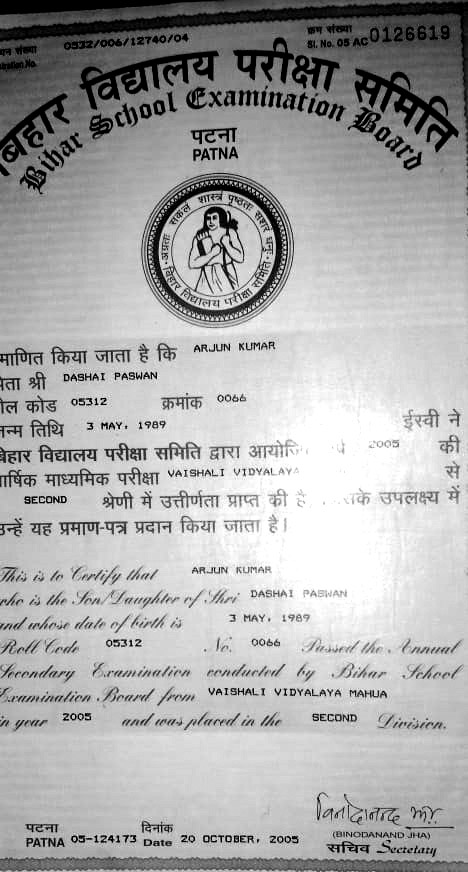 यन संख्या 0532/006/12740/04
क्रम संख्या
ration No.
Sl. No. 05 AC 0126619
बिहार विद्यालय परीक्षा समिति
Bihar School Examination Board
पटना
PATNA
अग्रतः सकलं शास्त्रं पृष्ठतः सशरं धनुः
बिहार विद्यालय परीक्षा समिति
माणित किया जाता है कि ARJUN KUMAR
पिता श्री DASHAI PASWAN
रोल कोड 05312 क्रमांक 0066
जन्म तिथि 3 MAY, 1989 ईस्वी ने
बिहार विद्यालय परीक्षा समिति द्वारा आयोजि 2005 की
वार्षिक माध्यमिक परीक्षा VAISHALI VIDYALAYA से
SECOND श्रेणी में उत्तीर्णता प्राप्त की है सके उपलक्ष्य में
उन्हें यह प्रमाण-पत्र प्रदान किया जाता है।
This is to Certify that ARJUN KUMAR
who is the Son/Daughter of Shri DASHAI PASWAN
and whose date of birth is 3 MAY, 1989
Roll Code 05312 No. 0066 Passed the Annual
Secondary Examination conducted by Bihar School
Examination Board from VAISHALI VIDYALAYA MAHUA
in year 2005 and was placed in the SECOND Division.
विनोदानन्द झा
(BINODANAND JHA)
पटना दिनांक
PATNA 05-124173 Date 20 OCTOBER, 2005
सचिव Secretary